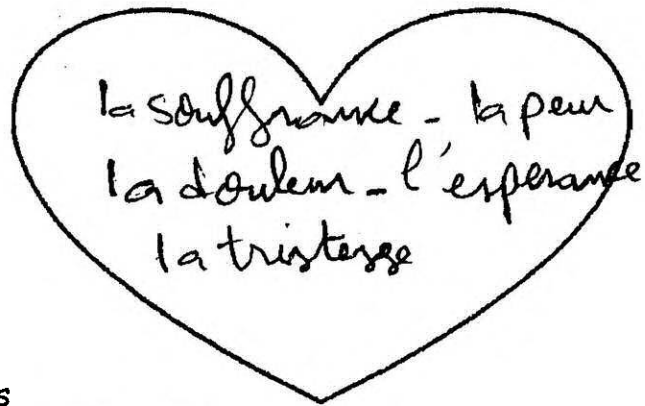 la souffrance - la peur
la douleur - l'espérance
la tristesse
s